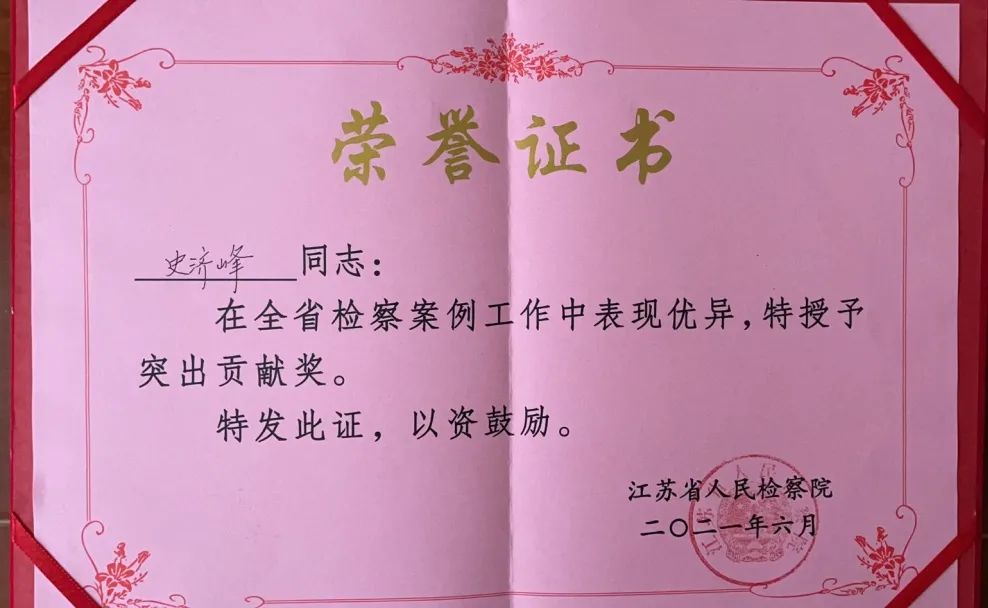 荣誉证书
史济峰同志：
在全省检察案例工作中表现优异，特授予
突出贡献奖。
特发此证，以资鼓励。
江苏省人民检察院
二〇二一年六月